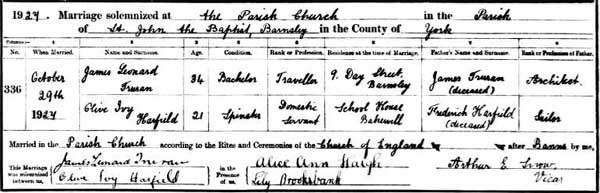 1927. Marriage solemnized at the Parish Church in the Parish
of St. John the Baptist, Barnsley in the County of York
Columns:— 1 2 3 4 5 6 7 8
No. When Married. Name and Surname. Age. Condition. Rank or Profession. Residence at the time of Marriage. Father's Name and Surname. Rank or Profession of Father.
336 October 29th 1927
James Leonard Trusan 34 Bachelor Traveller 9, Day Street, Barnsley James Trusan (deceased) Architect.
Olive Ivy Harfield 21 Spinster Domestic Servant School House Bakewell Frederick Harfield (deceased) Sailor
Married in the Parish Church according to the Rites and Ceremonies of the Church of England after Banns by me,
This Marriage was solemnized between us, James Leonard in the Presence of us, Alice Ann Haigh Arthur E. Snow,
Olive Ivy Harfield Lily Brooksbank Vicar